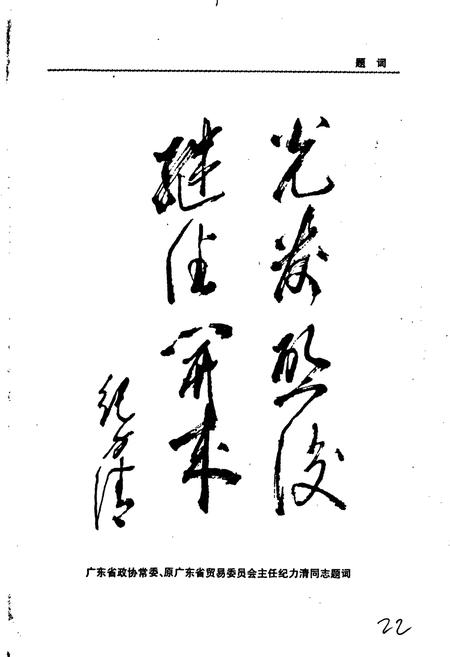 题 词
光 後
继往开来
纪力清
广东省政协常委、原广东省贸易委员会主任纪力清同志题词
22